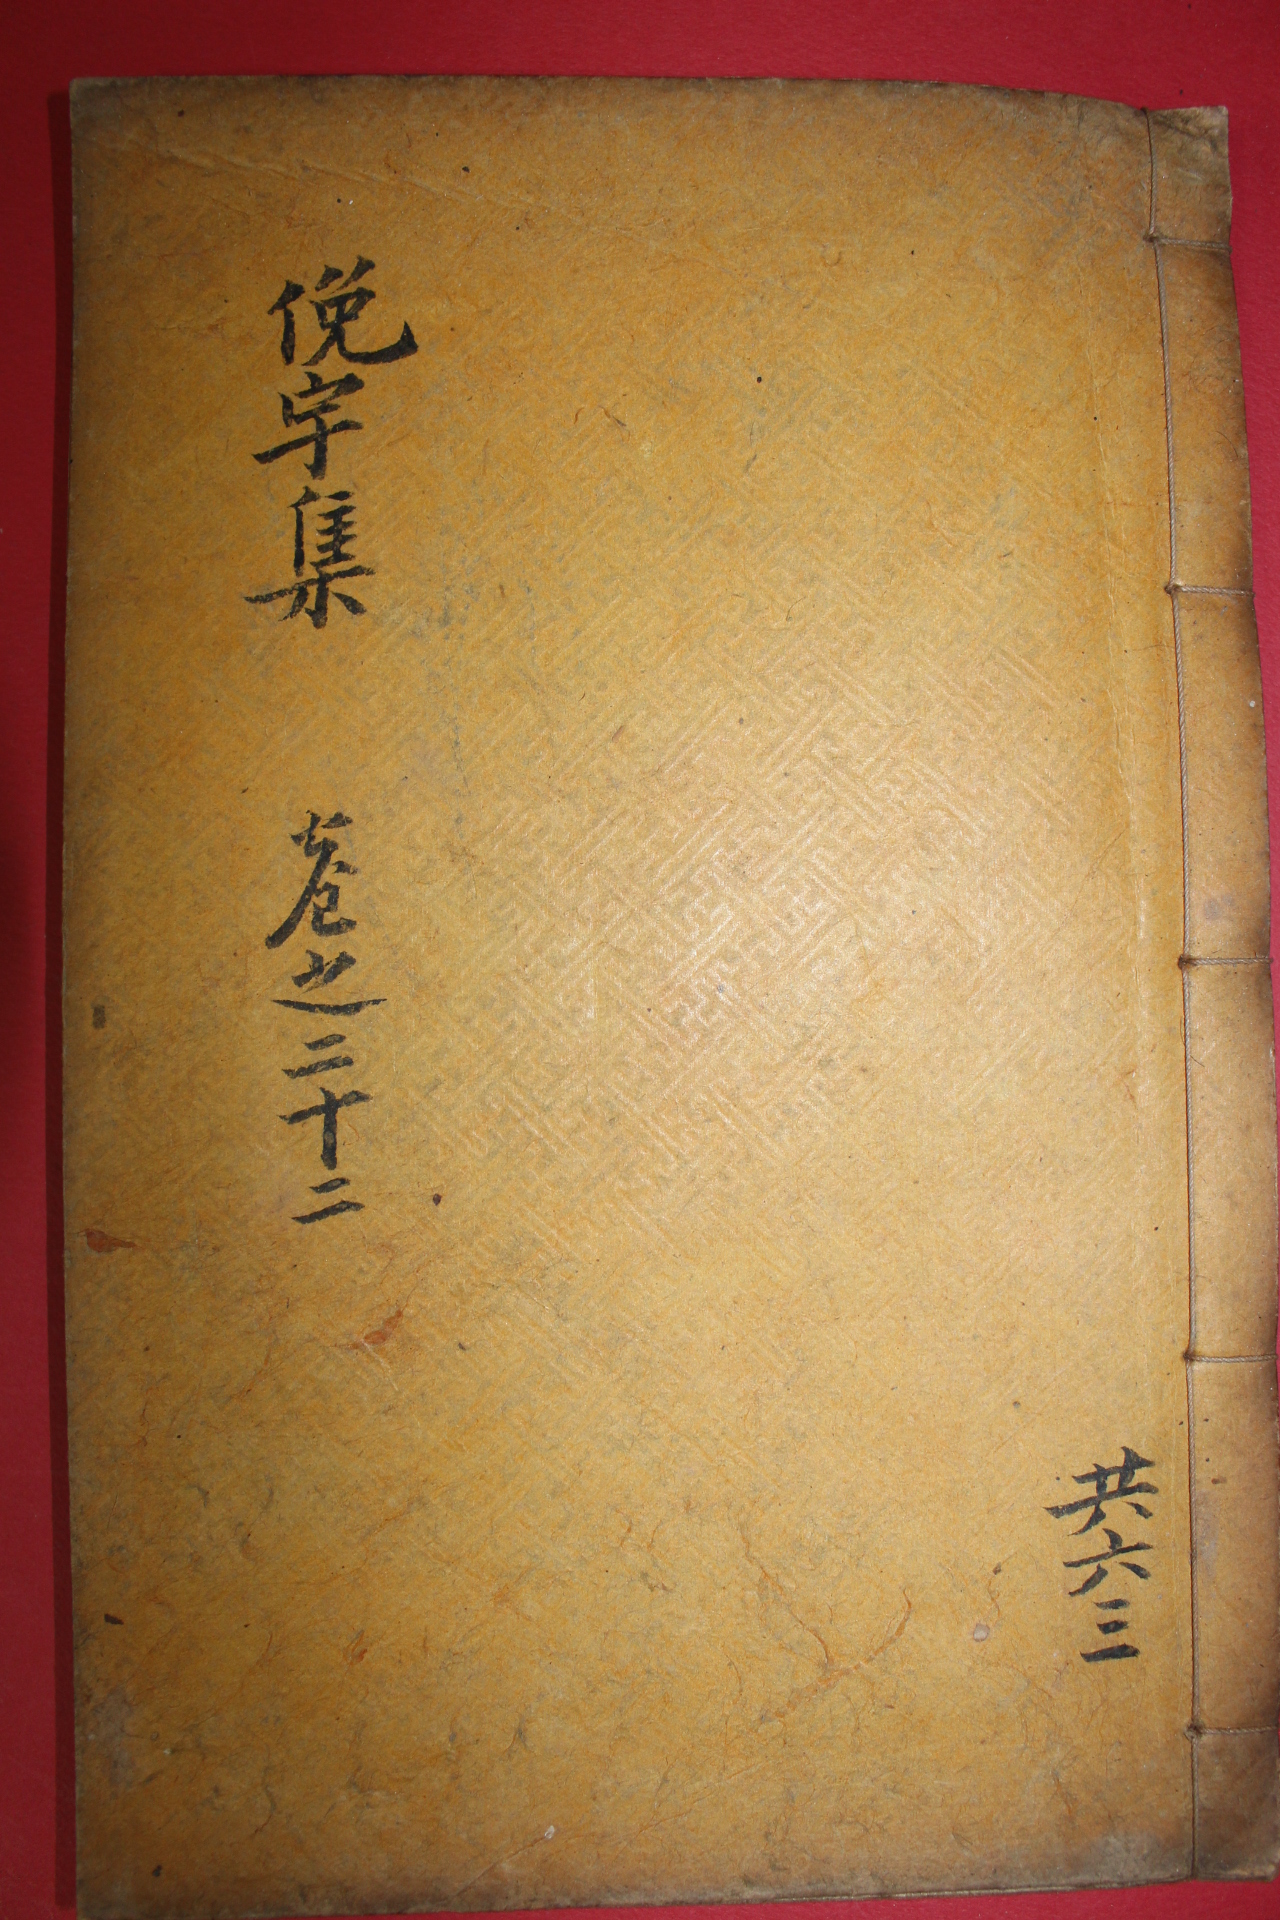 俛宇集 卷之二十二
共六三